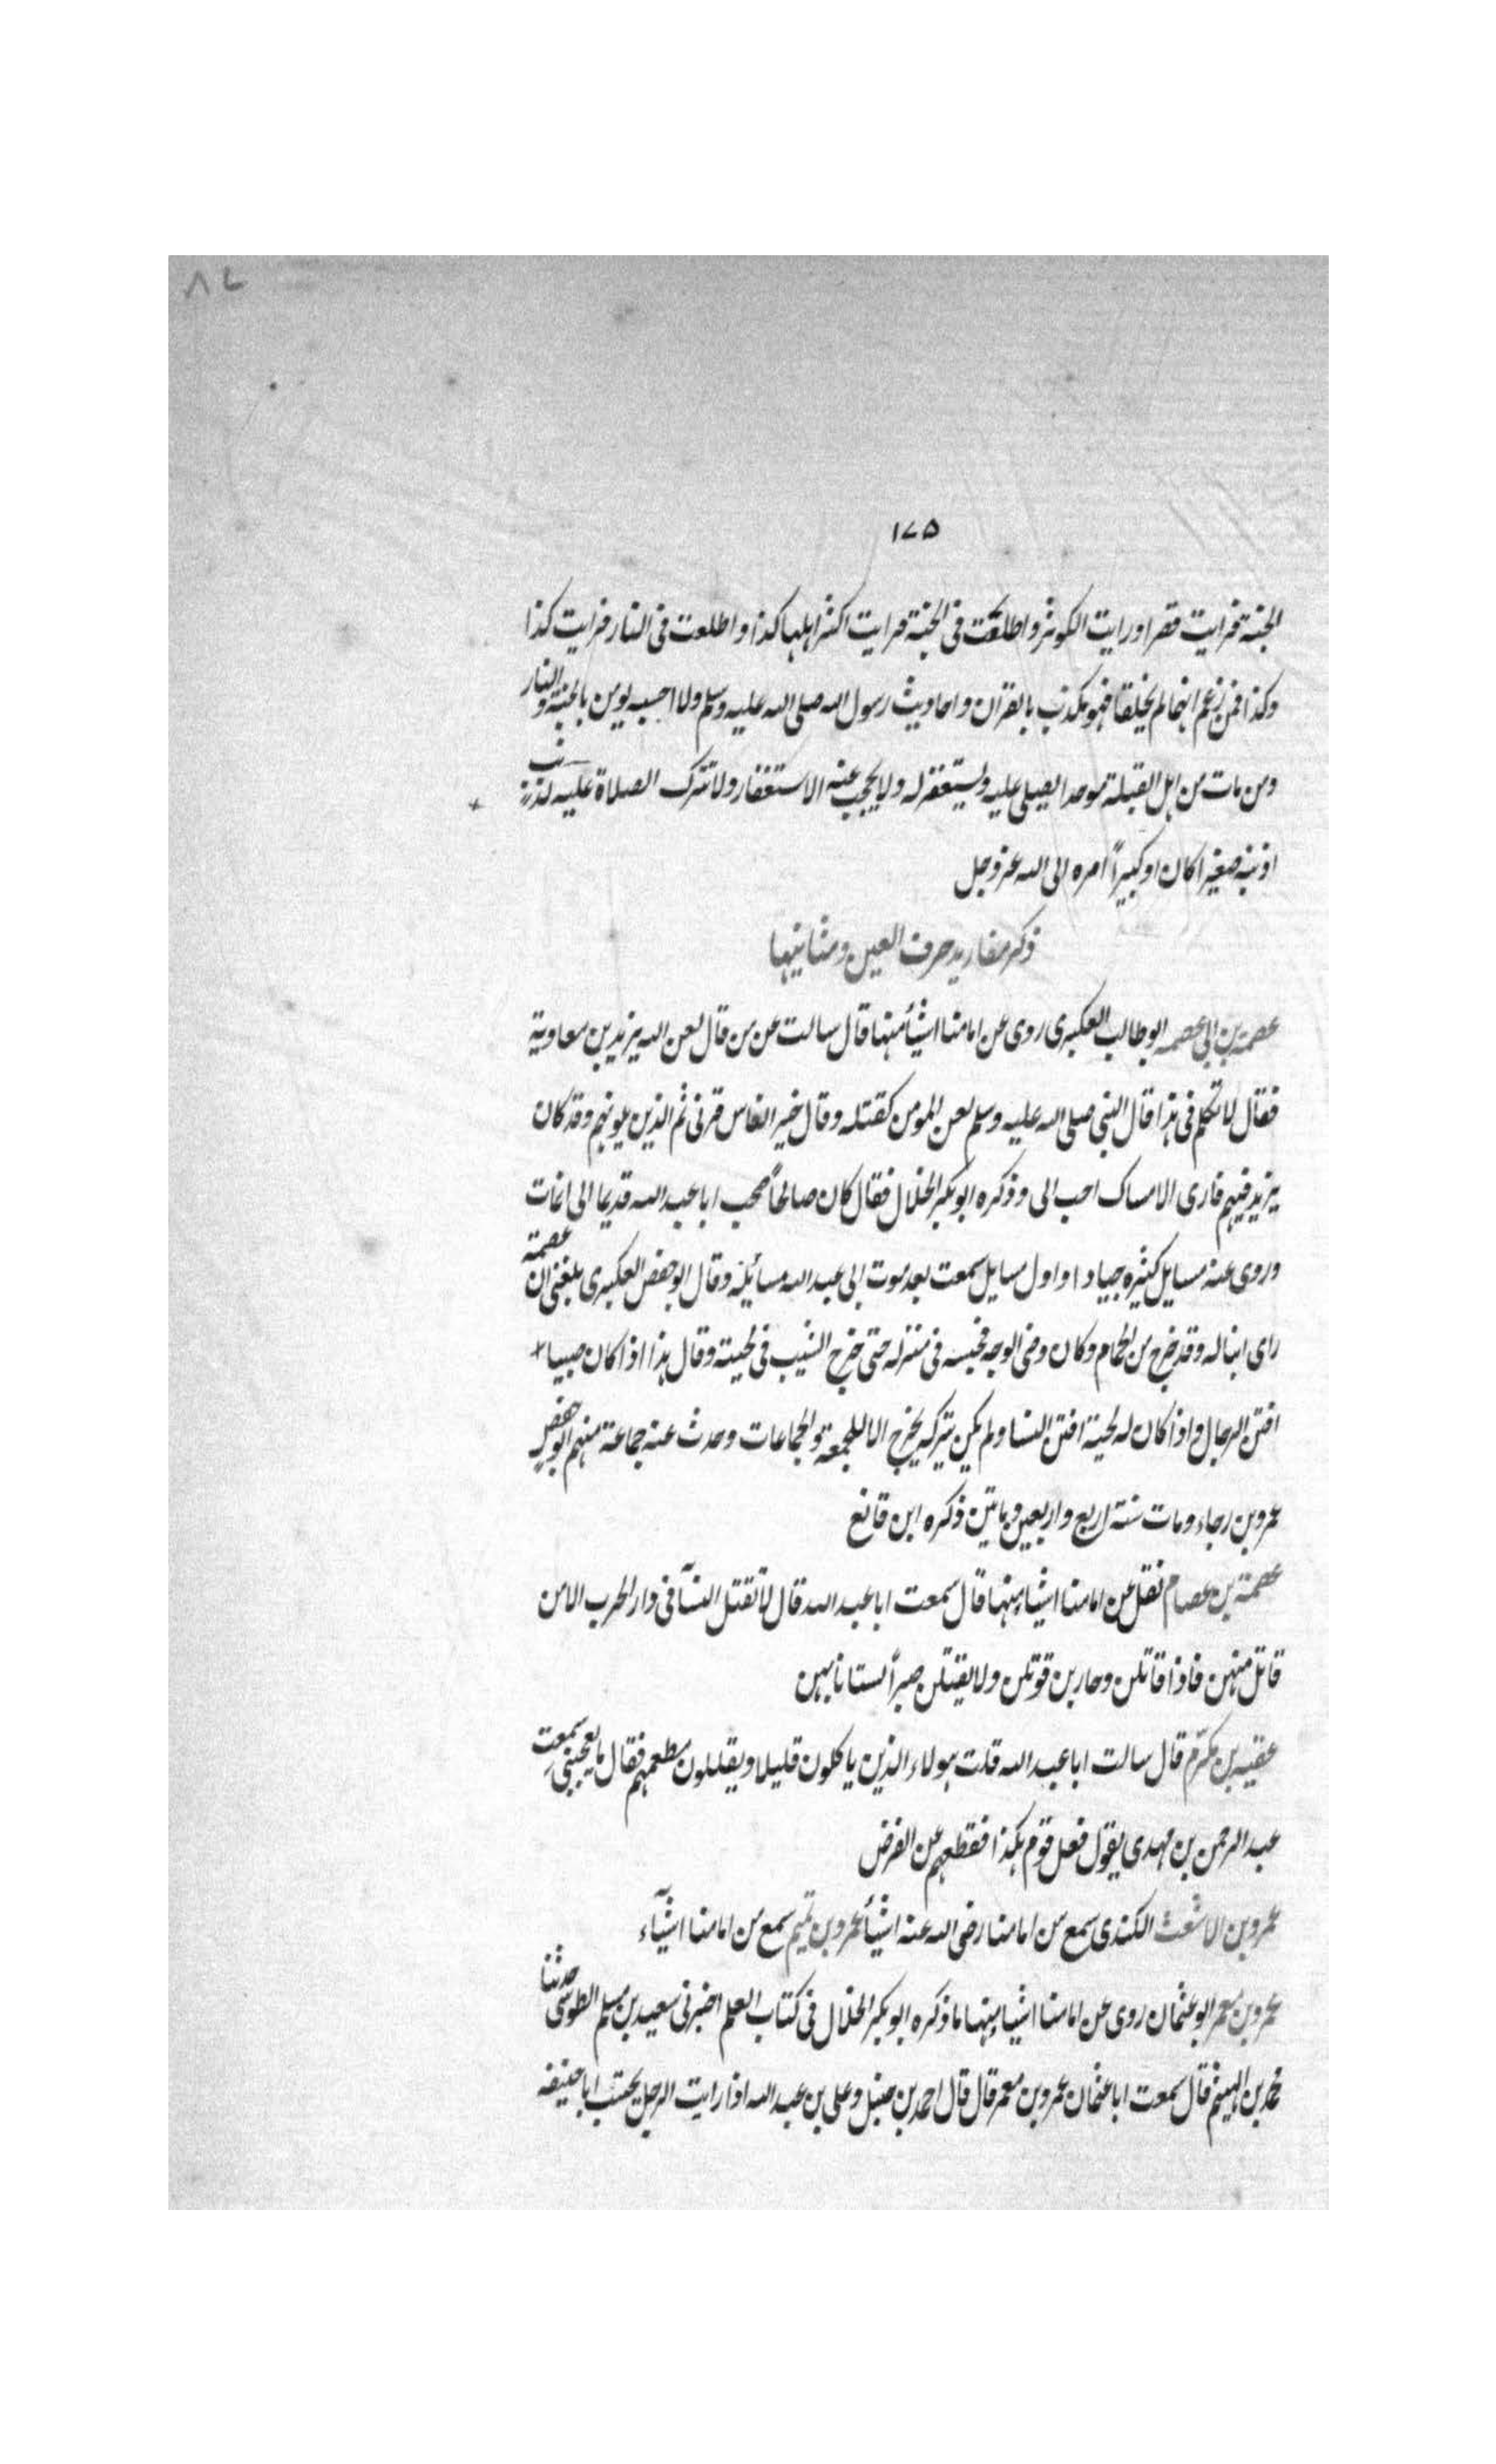 ٨٧
١٧٥
الجنة فرايت قصرا ورايت الكوثر واطلعت فى الجنة فرايت اكثر اهلها كذا واطلعت فى النار فرايت كذا
وكذا فمن زعم انهما لم يخلقا فهو مكذب بالقران واحاديث رسول الله صلى الله عليه وسلم ولا احسبه يومن بالجنة والنار
ومن مات من اهل القبلة موحدا يصلى عليه ويستغفر له ولا يحجب عنه الاستغفار ولا تترك الصلاة عليه لذنب
اذنبه صغيرا كان او كبيراً امره الى الله عز وجل
ذكر مفاريد حرف العين ومثانيها
عصمة بن ابى عصمه ابو طالب العكبرى روى عن امامنا اشيأ منها قال سالت عن من قال لعن الله يزيد بن معاوية
فقال لا تكلم فى هذا قال النبى صلى الله عليه وسلم لعن المومن كقتله وقال خير الناس قرنى ثم الذين يلونهم وقد كان
يزيد فيهم فارى الامساك احب الى وذكره ابو بكر الخلال فقال كان صالحاً صحب ابا عبد الله قديما الى ان مات
وروى عنه مسايل كثيره جيادا واول مسايل سمعت بعد موت ابى عبد الله مسائله وقال ابو حفص العكبرى بلغنى ان عصمة
راى ابنا له وقد خرج من الحمام وكان وضى الوجه فحبسه فى منزله حتى خرج الشيب فى لحيته وقال هذا اذا كان صبيا
افتن الرجال واذا كان له لحية افتن النسا ولم يكن يتركه يخرج الا للجمعة والجماعات وحدث عنه جماعة منهم ابو حفص
عمرو بن رجاء ومات سنة اربع واربعين وماتين ذكره ابن قانع
عصمة بن عصام نقل عن امامنا اشياء منها قال سمعت ابا عبد الله قال لا تقتل النسآ فى دار الحرب الا من
قاتل منهن فاذا قاتلن وحاربن قوتلن ولا يقتلن صبراً لستانا بهن
عقبه بن مكرم قال سالت ابا عبد الله قلت هولاء الذين ياكلون قليلا ويقللون مطعمهم فقال ما يعجبنى سمعت
عبد الرحمن بن مهدى يقول فعل قوم هكذا فقطعهم عن الفرض
عمرو بن الاشعث الكندى سمع من امامنا رضى الله عنه اشيأ عمرو بن تميم سمع من امامنا اشيآء
عمرو بن معمر ابو عثمان روى عن امامنا اشياء منها ما ذكره ابو بكر الخلال فى كتاب العلم اخبرنى سعيد بن مسلم الطوسى حدثنا
محمد بن الهيثم قال سمعت ابا عثمان عمرو بن معمر قال قال احمد بن حنبل وعلى بن عبد الله اذا رايت الرجل يجتنب ابا حنيفه